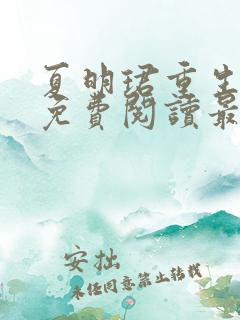 夏明珺重生
免費閱讀最
安拙
未經同意禁止轉載